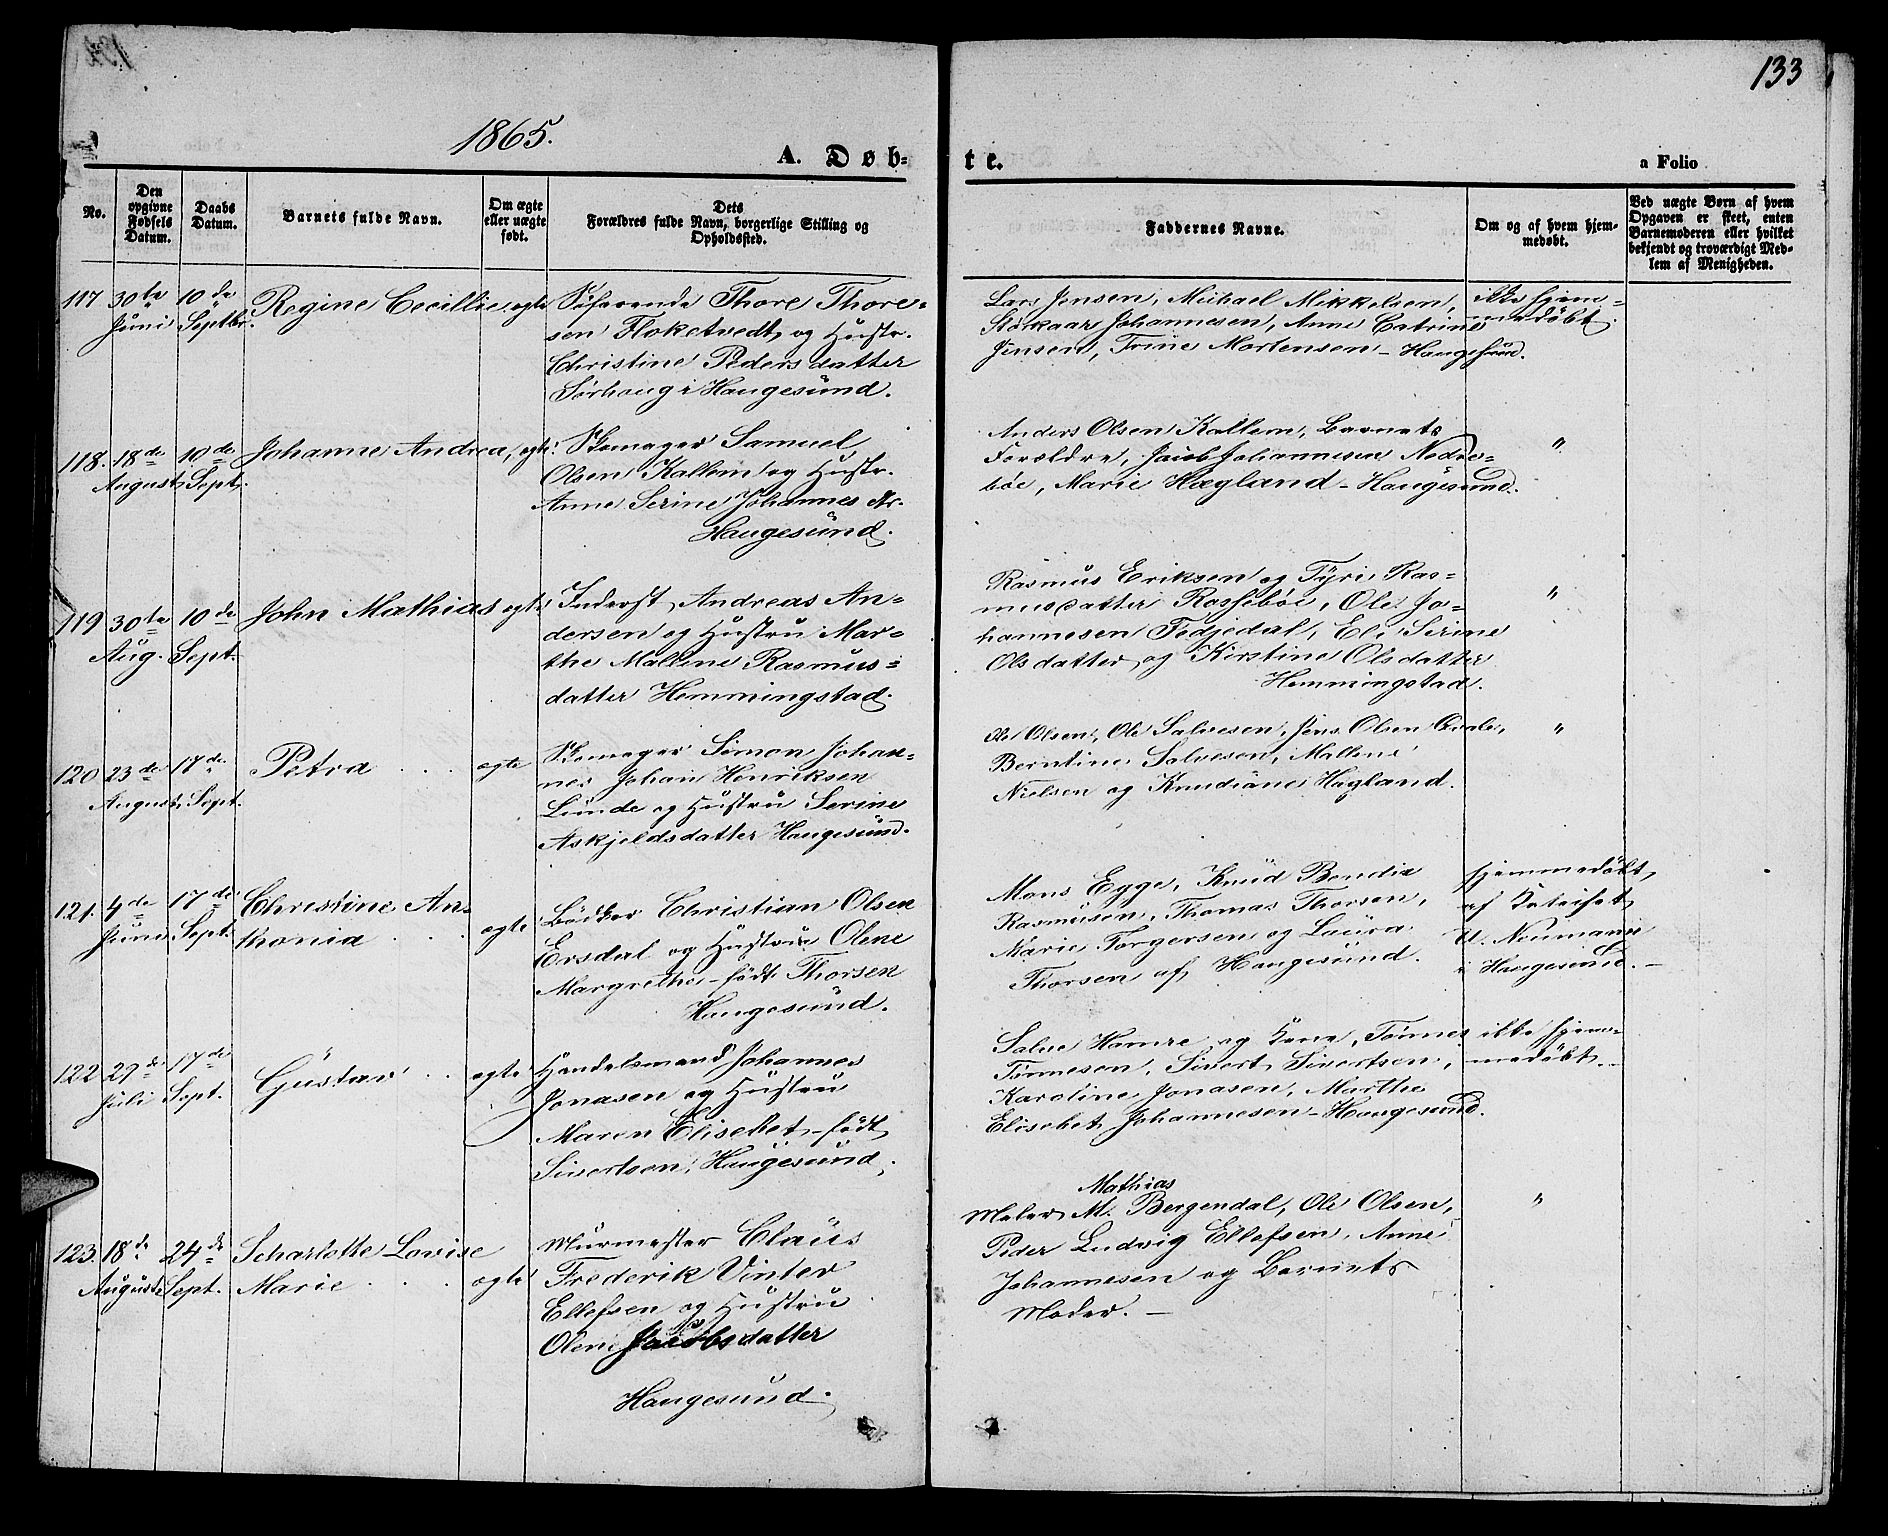 133
1865.
A. Døb-
te.
a Folio
No.
Den opgivne Fødsels Datum.
Daabs Datum.
Barnets fulde Navn.
Om ægte eller uægte født.
Dets Forældres fulde Navn, borgerlige Stilling og Opholdssted.
Faddernes Navne.
Om og af hvem hjemmedøbt.
Ved uægte Børn af hvem Opgaven er skeet, enten Barnemoderen eller hvilket bekjendt og troværdigt Medlem af Menigheden.
117 30te Juni 10de Septbr. Regine Cecillie egte
Søfarende Thore Thore=
sen Floketvedt og Hustr.
Christine Pedersdatter
Sørhaug i Haugesund.
Lars Jensen, Michael Mikkelsen,
Storkaar Johannesen, Anne Catrine
Jensen, Trine Mortensen - Haugesund.
ikke hjem=
medøbt.
118. 18de August 10de Sept. Johanne Andrea, egte
Skomager Samuel
Olsen Kallem og Hustr.
Anne Serine Johannes dr.
Haugesund.
Anders Olsen Kallem, Barnets
Forældre, Jacob Johannesen Nedre=
bøe, Marie Hægland - Haugesund.
"
119 30te Aug. 10de Sept. John Mathias egte
Inderst Andreas An=
dersen og Hustru Mar=
the Mallene Rasmus=
datter Hemmingstad.
Rasmus Eriksen og Tyri Ras=
musdatter Rossebøe, Ole Jo=
hannesen Fedjedal, Eli Serine
Olsdatter og Kirstine Olsdatter
Hemmingstad.
"
120 23de August 17de Sept. Petra . . . egte
Skomager Simon Johan=
nes Johan Henriksen
Lunde og Hustru Serine
Askjeldsdatter Haugesund.
Ole Olsen, Ole Salvesen, Jens Olsen Qvale,
Berntine Salvesen, Mallene
Nielsen og Knudiane Hagland.
"
121. 4de Juni 17de Sept. Christine An=
thonia . . . egte
Bödker Christian Olsen
Ersdal og Hustru Olene
Margrethe - född Thorsen
Haugesund.
Mons Egge, Knud Bendix
Rasmusen, Thomas Thorsen,
Marie Torgersen og Laura
Thorsen af Haugesund.
hjemmedøbt
af
U. Neumann
i Haugesund. -
122 29de Juli 17de Sept. Gustav . . egte
Handelsmand Johannes
Jonasen og Hustru
Maren Elisebet - född
Sivertsen, Haugesund.
Salve Hamre og Kone, Tønnes
Tønnesen, Sivert Sivertsen,
Karoline Jonasen, Marthe
Elisebet Johannesen - Haugesund.
ikke hjem=
medøbt. -
123. 18de August 24de Sept. Scharlotte Lovise
Marie . . . egte
Murmester Claus
Frederik Vinter
Ellefsen og Hustru
Olene Jacobsdatter
Haugesund.
Mathias
Maler M. Bergendal, Ole Olsen,
Peder Ludvig Ellefsen, Anne
Johannesen og Barnets
Moder. -
"